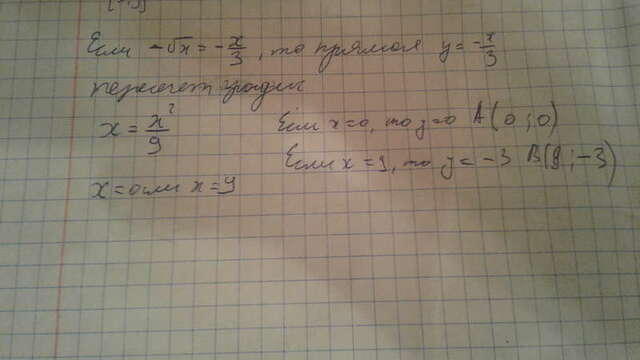 Если -√x = -x/3, то прямая y = -x/3
пересечет график
x = x²/9 Если x=0, то y=0 A(0;0)
Если x=9, то y=-3 B(9;-3)
x=0 или x=9